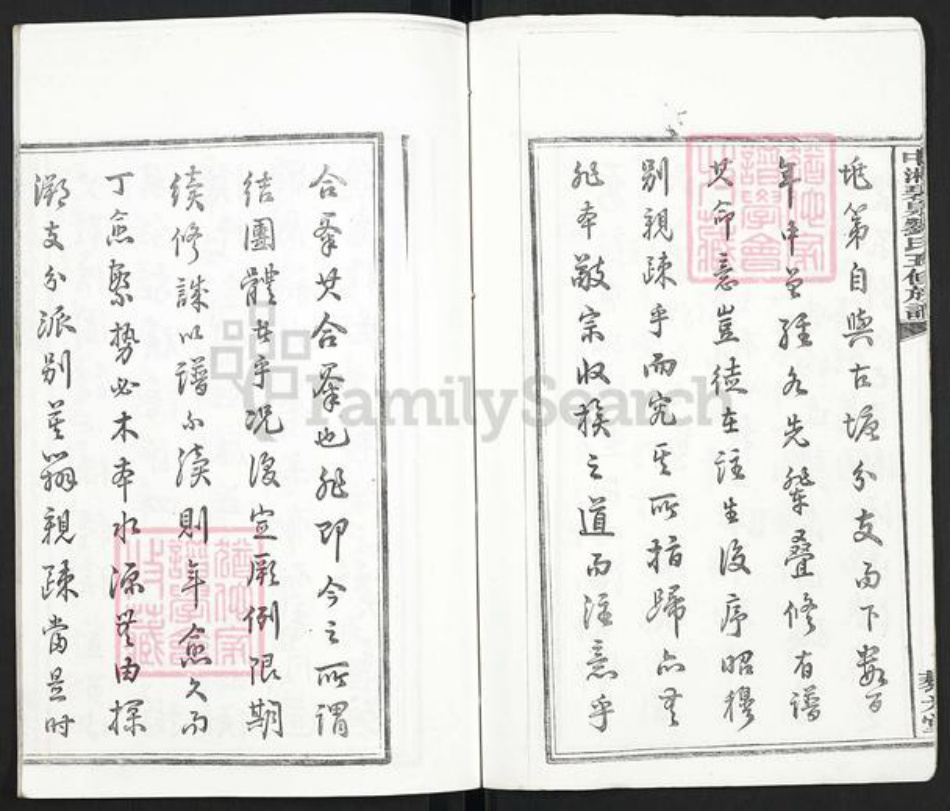 中湘碧泉劉氏五修族譜
派第自與古塘分支而下數百
年中曾經久先輩疊修有譜
其命意豈徒在註生歿序昭穆
別親疎乎而究其所指歸亦無
非本敬宗收族之道而注意乎
合羣其合羣也非即今之所謂
結團體者乎況復定厥例限期
續修誠以譜不續則年愈久而
丁愈繁勢必木本水源無由探
溯支分派別莫辨親疎當是時
FamilySearch